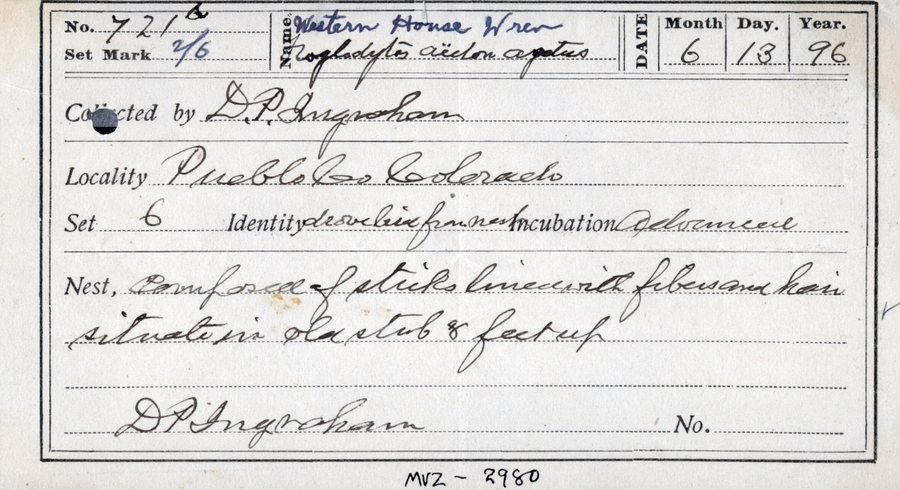 No. 721a Name. Western House Wren DATE Month Day. Year.
Set Mark 2/6 Troglodytes aëdon aztecus 6 13 96
Collected by D.P. Ingraham
Locality Pueblo Co Colorado
Set 6 Identity drove bird from nest Incubation Advanced
Nest, composed of sticks lined with fibers and hair
situate in old stub 8 feet up
D P Ingraham No.
MVZ - 2980